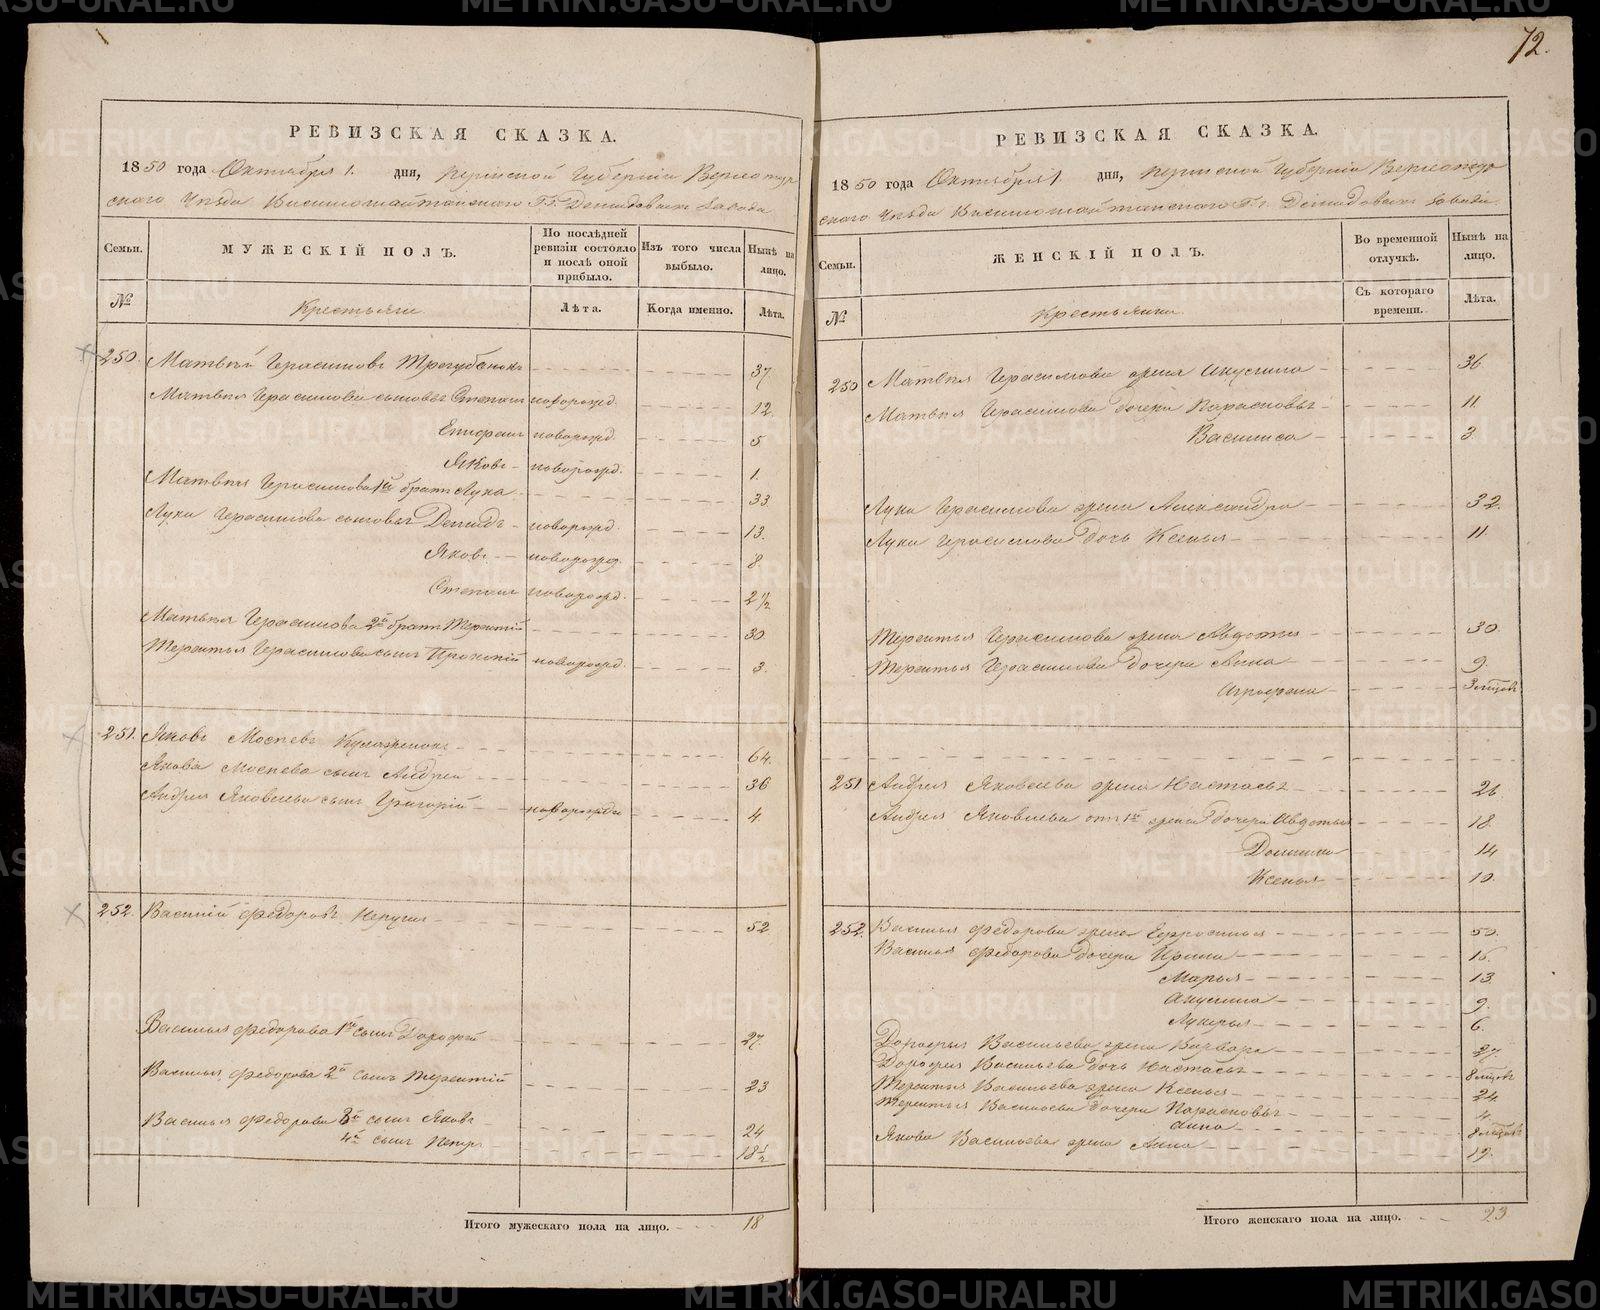 72.
РЕВИЗСКАЯ СКАЗКА.
1850 года Октября 1. дня, Пермской Губерніи Верхотур
скаго Уѣзда Висимошайтанскаго Гг. Демидовыхъ Завода
Семьи.
МУЖЕСКІЙ ПОЛЪ.
По послѣдней ревизіи состояло и послѣ оной прибыло.
Изъ того числа выбыло.
Нынѣ на лицо.
№
Крестьяне
Лѣта.
Когда именно.
Лѣта.
250. Матвѣй Герасимовъ 37
Матвѣя Герасимова сыновья Степанъ новорожд. 12.
Епифанъ новорожд. 5
Яковъ новорожд. 1.
Матвѣя Герасимова 1й братъ Лука 33
Луки Герасимова сыновья Демидъ новорожд. 13.
Яковъ новорожд. 8
Степанъ новорожд. 2 1/2
Матвѣя Герасимова 2й братъ Терентій 30
Терентья Герасимова сынъ Прокопій новорожд. 3.
251. Яковъ Мосѣевъ 64.
Якова Мосѣева сынъ Андрей 36
Андрея Яковлева сынъ Григорій новорожд. 4.
252. Василій Федоровъ 52
Василья Федорова 1й сынъ Дорофей 27.
Василья Федорова 2й сынъ Терентій 23
Василья Федорова 3й сынъ Яковъ 24
4й сынъ Петръ 18 1/2
Итого мужескаго пола на лицо. 18
РЕВИЗСКАЯ СКАЗКА.
1850 года Октября 1. дня, Пермской Губерніи Верхотур
скаго Уѣзда Висимошайтанскаго Гг. Демидовыхъ Завода
Семьи.
ЖЕНСКІЙ ПОЛЪ.
Во временной отлучкѣ.
Нынѣ на лицо.
№
Крестьянки
Съ котораго времени.
Лѣта.
250 Матвѣя Герасимова жена Акулина 36
Матвѣя Герасимова дочери Парасковья 11.
Василиса 3.
Луки Герасимова жена Александра 32.
Луки Герасимова дочь Ксенья 11.
Терентья Герасимова жена Авдотья 30.
Терентья Герасимова дочери Анна 9.
Аграфена 3 мѣсец.
251 Андрея Яковлева жена Настасья 26
Андрея Яковлева отъ 1й жены дочери Авдотья 18.
14
Ксенья 10.
252. Василья Федорова жена Ефросинья 50.
Василья Федорова дочери Ирина 16.
Марья 13.
Акулина 9.
Лукерья 6.
Дорофея Васильева жена Варвара 27.
Дорофея Васильева дочь Настасья 8 мѣсец.
Терентья Васильева жена Ксенья 24.
Терентья Васильева дочери Парасковья 4.
Анна 8 мѣсец.
Якова Васильева жена Анна 19.
Итого женскаго пола на лицо. 23
METRIKI.GASO-URAL.RU